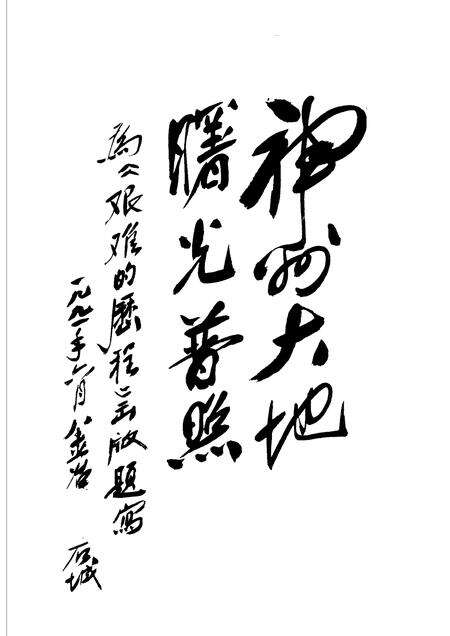 神州大地
曙光普照
為《艰难的歷程》出版題寫
一九九一年六月
石城